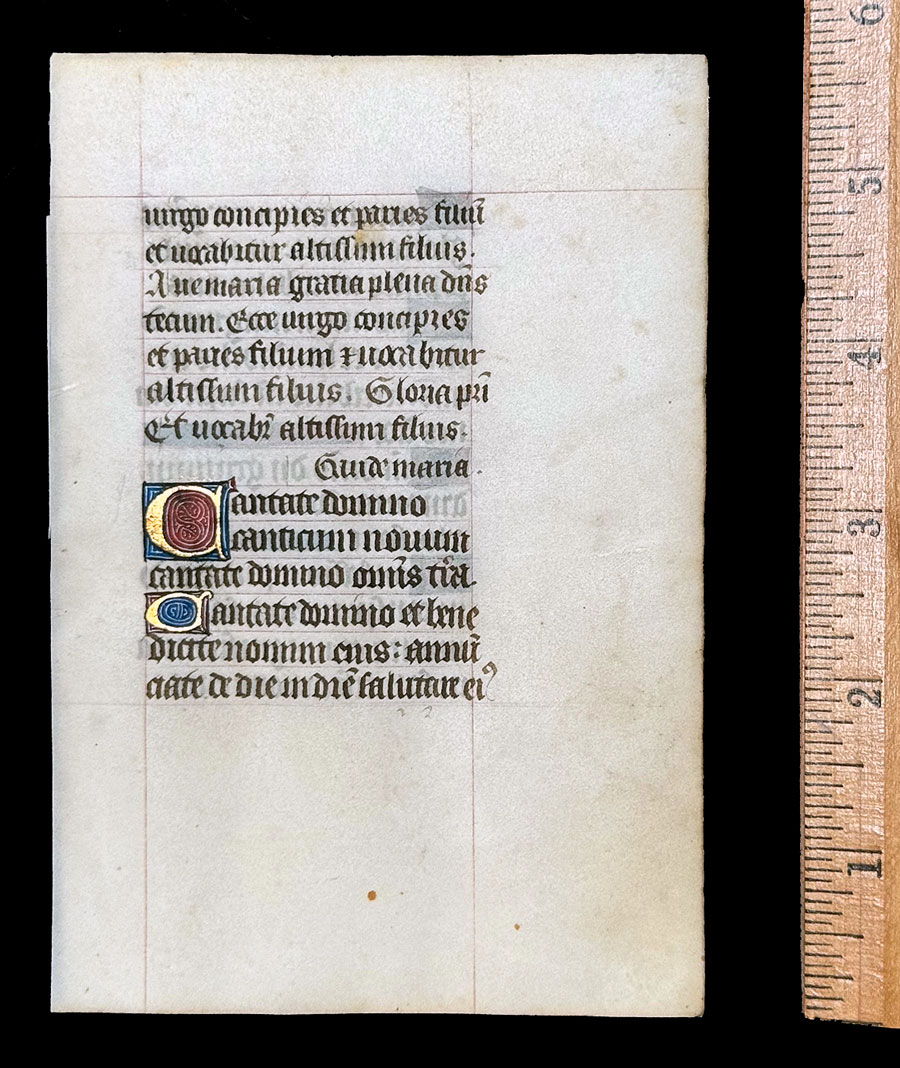 uirgo concipies et paries filiū
et uocabitur altissimi filius.
Aue maria gratia plena dn̄s
tecum. Ecce uirgo concipies
et paries filium ⁊ uocabitur
altissimi filius. Gloria pr̄i
Et uocabr̄ altissimi filius.
Gaude maria.
Cantate domino
canticum nouum
cantate domino omīs tr̄a.
Cantate domino et bene
dicite nomini eius: annū
ciate de die in diē salutare ei⁹
6
5
4
3
2
1